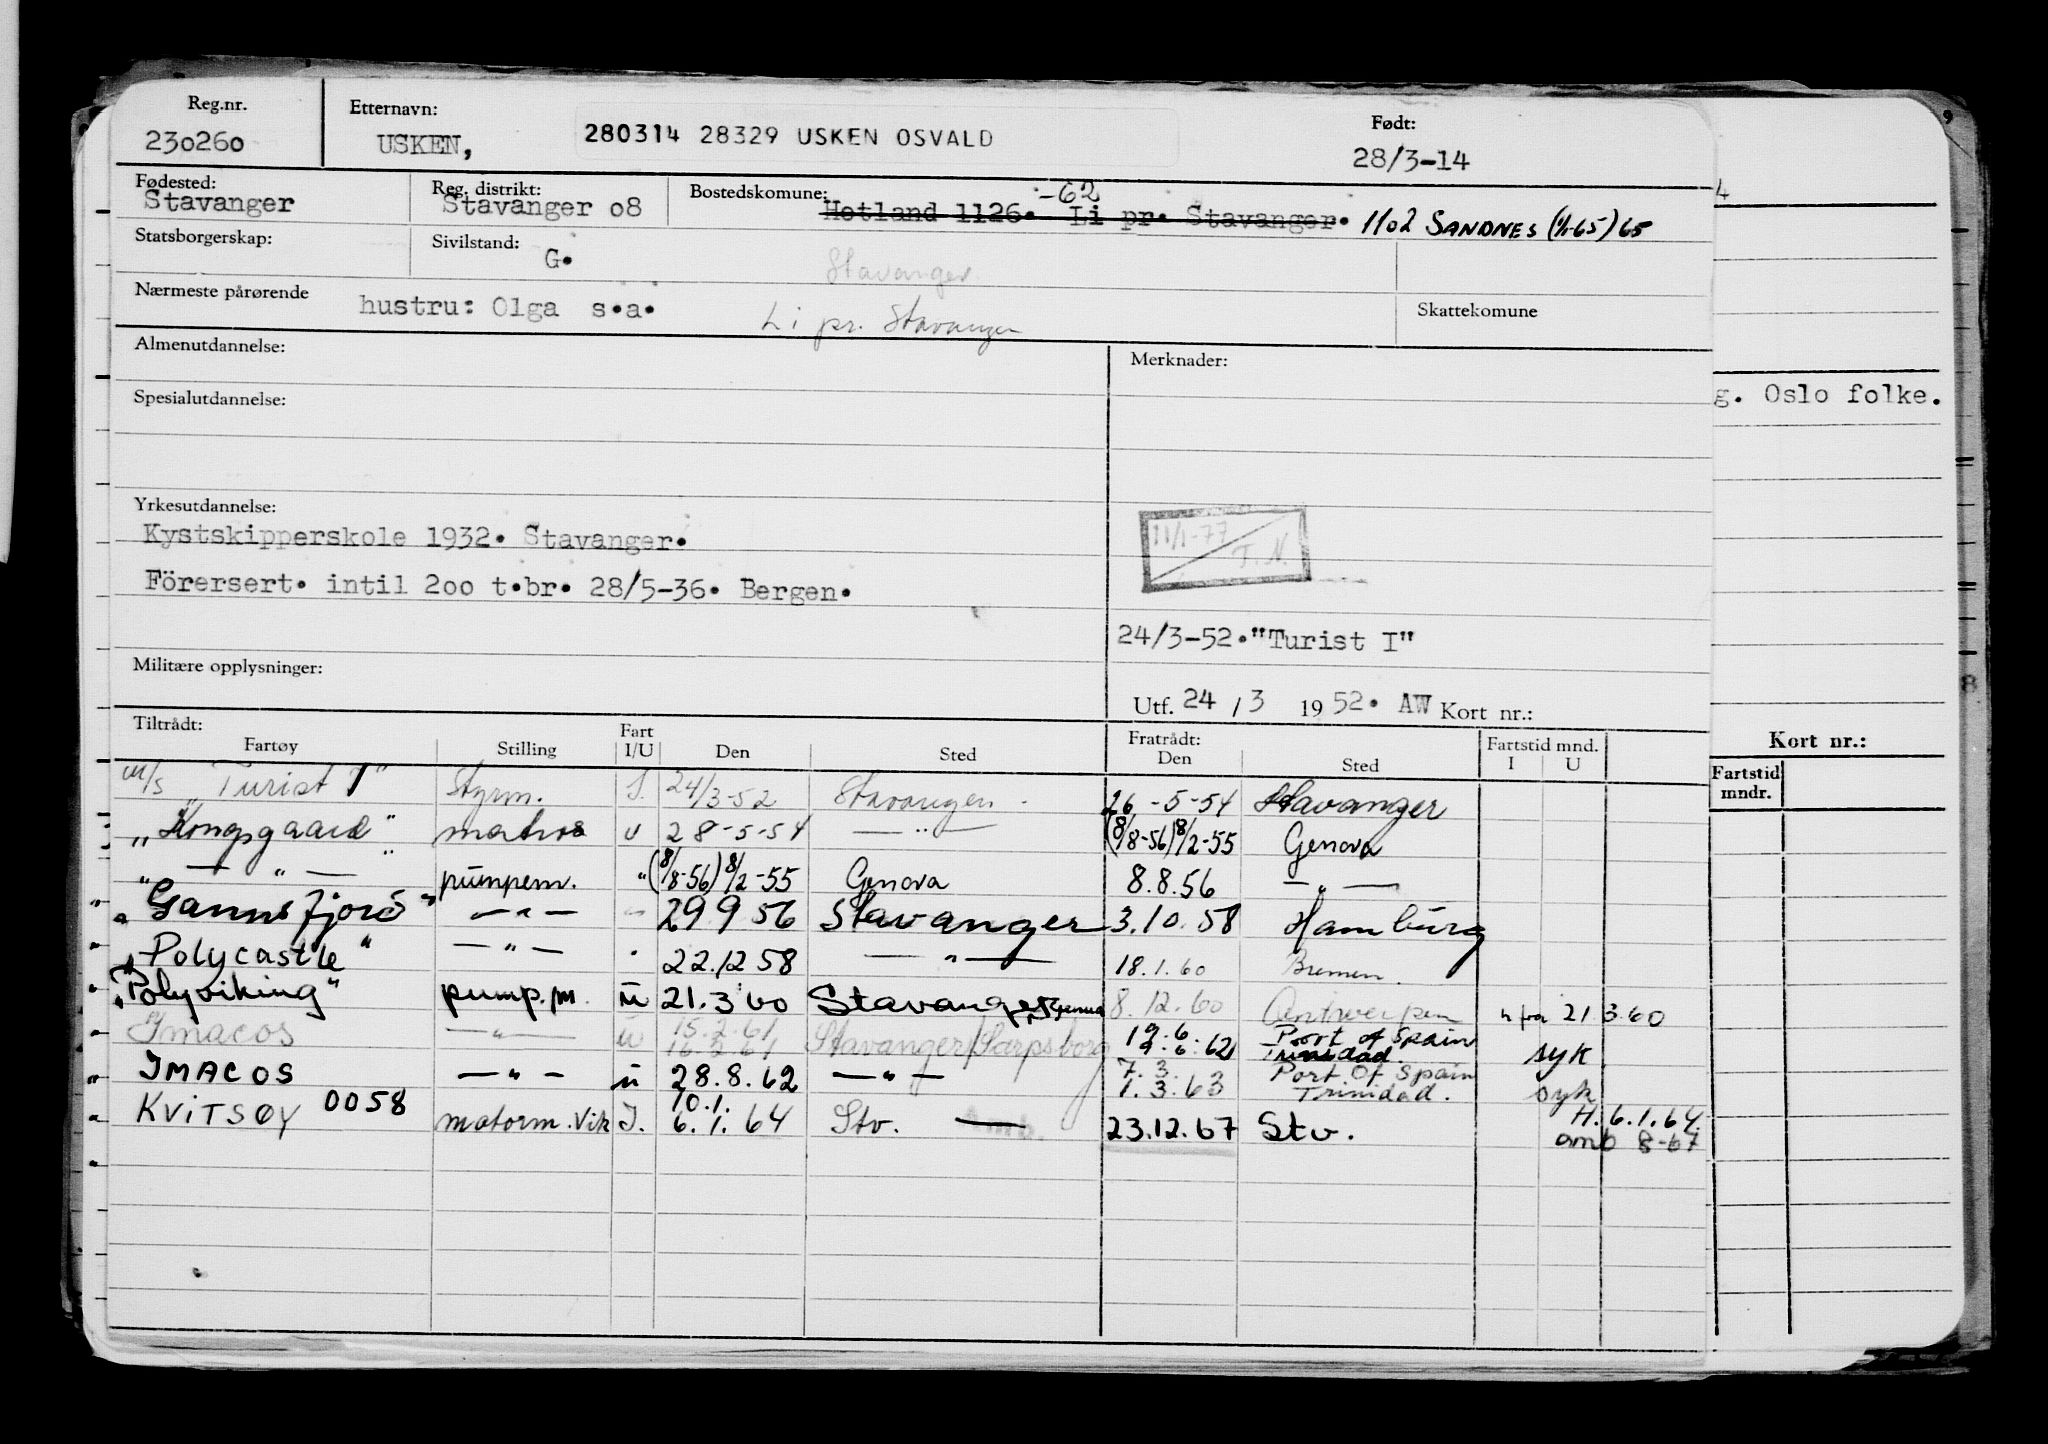 Reg.nr. Etternavn: Født:
230260 USKEN, 280314 28329 USKEN OSVALD 28/3-14
Fødested: Reg. distrikt: Bostedskomune: -62
Stavanger Stavanger o8 Hetland 1126. Li pr. Stavanger. 1102 SANDNES (1/1-65) 65
Statsborgerskap: Sivilstand:
G. Stavanger
Nærmeste pårørende hustru: Olga s.a. Li pr. Stavanger Skattekomune
Almenutdannelse: Merknader:
Spesialutdannelse: g. Oslo folke.
Yrkesutdannelse:
Kystskipperskole 1932. Stavanger. 11/1-77 T.N.
Förersert. intil 2oo t.br. 28/5-36. Bergen.
24/3-52."Turist I"
Militære opplysninger:
Utf. 24 / 3 1952. AW Kort nr.:
Tiltrådt: Fart Fratrådt: Fartstid mnd. Kort nr.:
Fartøy Stilling I/U Den Sted Den Sted I U Fartstid mndr.
m/s "Turist I" Styrm. I. 24/3-52 Stavanger. 26-5-54 Stavanger
"Kongsgaard" matros u 28-5-54 — " — (8/8-56) 8/2-55 Genova
— " — pumpem. " (8/8-56) 8/2-55 Genova 8.8.56 — " —
"Gannsfjord" — " — " 29 9 56 Stavanger 3.10.58 Hamburg
"Polycastle" — " — " 22.12 58 — " — 18.1.60 Bremen
"Polyviking" pump.m. u 21.3 60 Stavanger 8.12.60 Antwerpen u fra 21 3.60
Imacos — " — u 15.2.61 16.2.61 Stavanger/Sarpsborg 9.6.62 Port of Spain Trinidad. syk
IMACOS — " — u 28.8.62 — " — 7.3. 1.3.63 Port Of Spain Trinidad. syk
KVITSØY 0058 motorm.vik I. 10.1. 6.1.64 Stv. — 23.12.67 Stv. H. 6.1.64.
amb 8-67